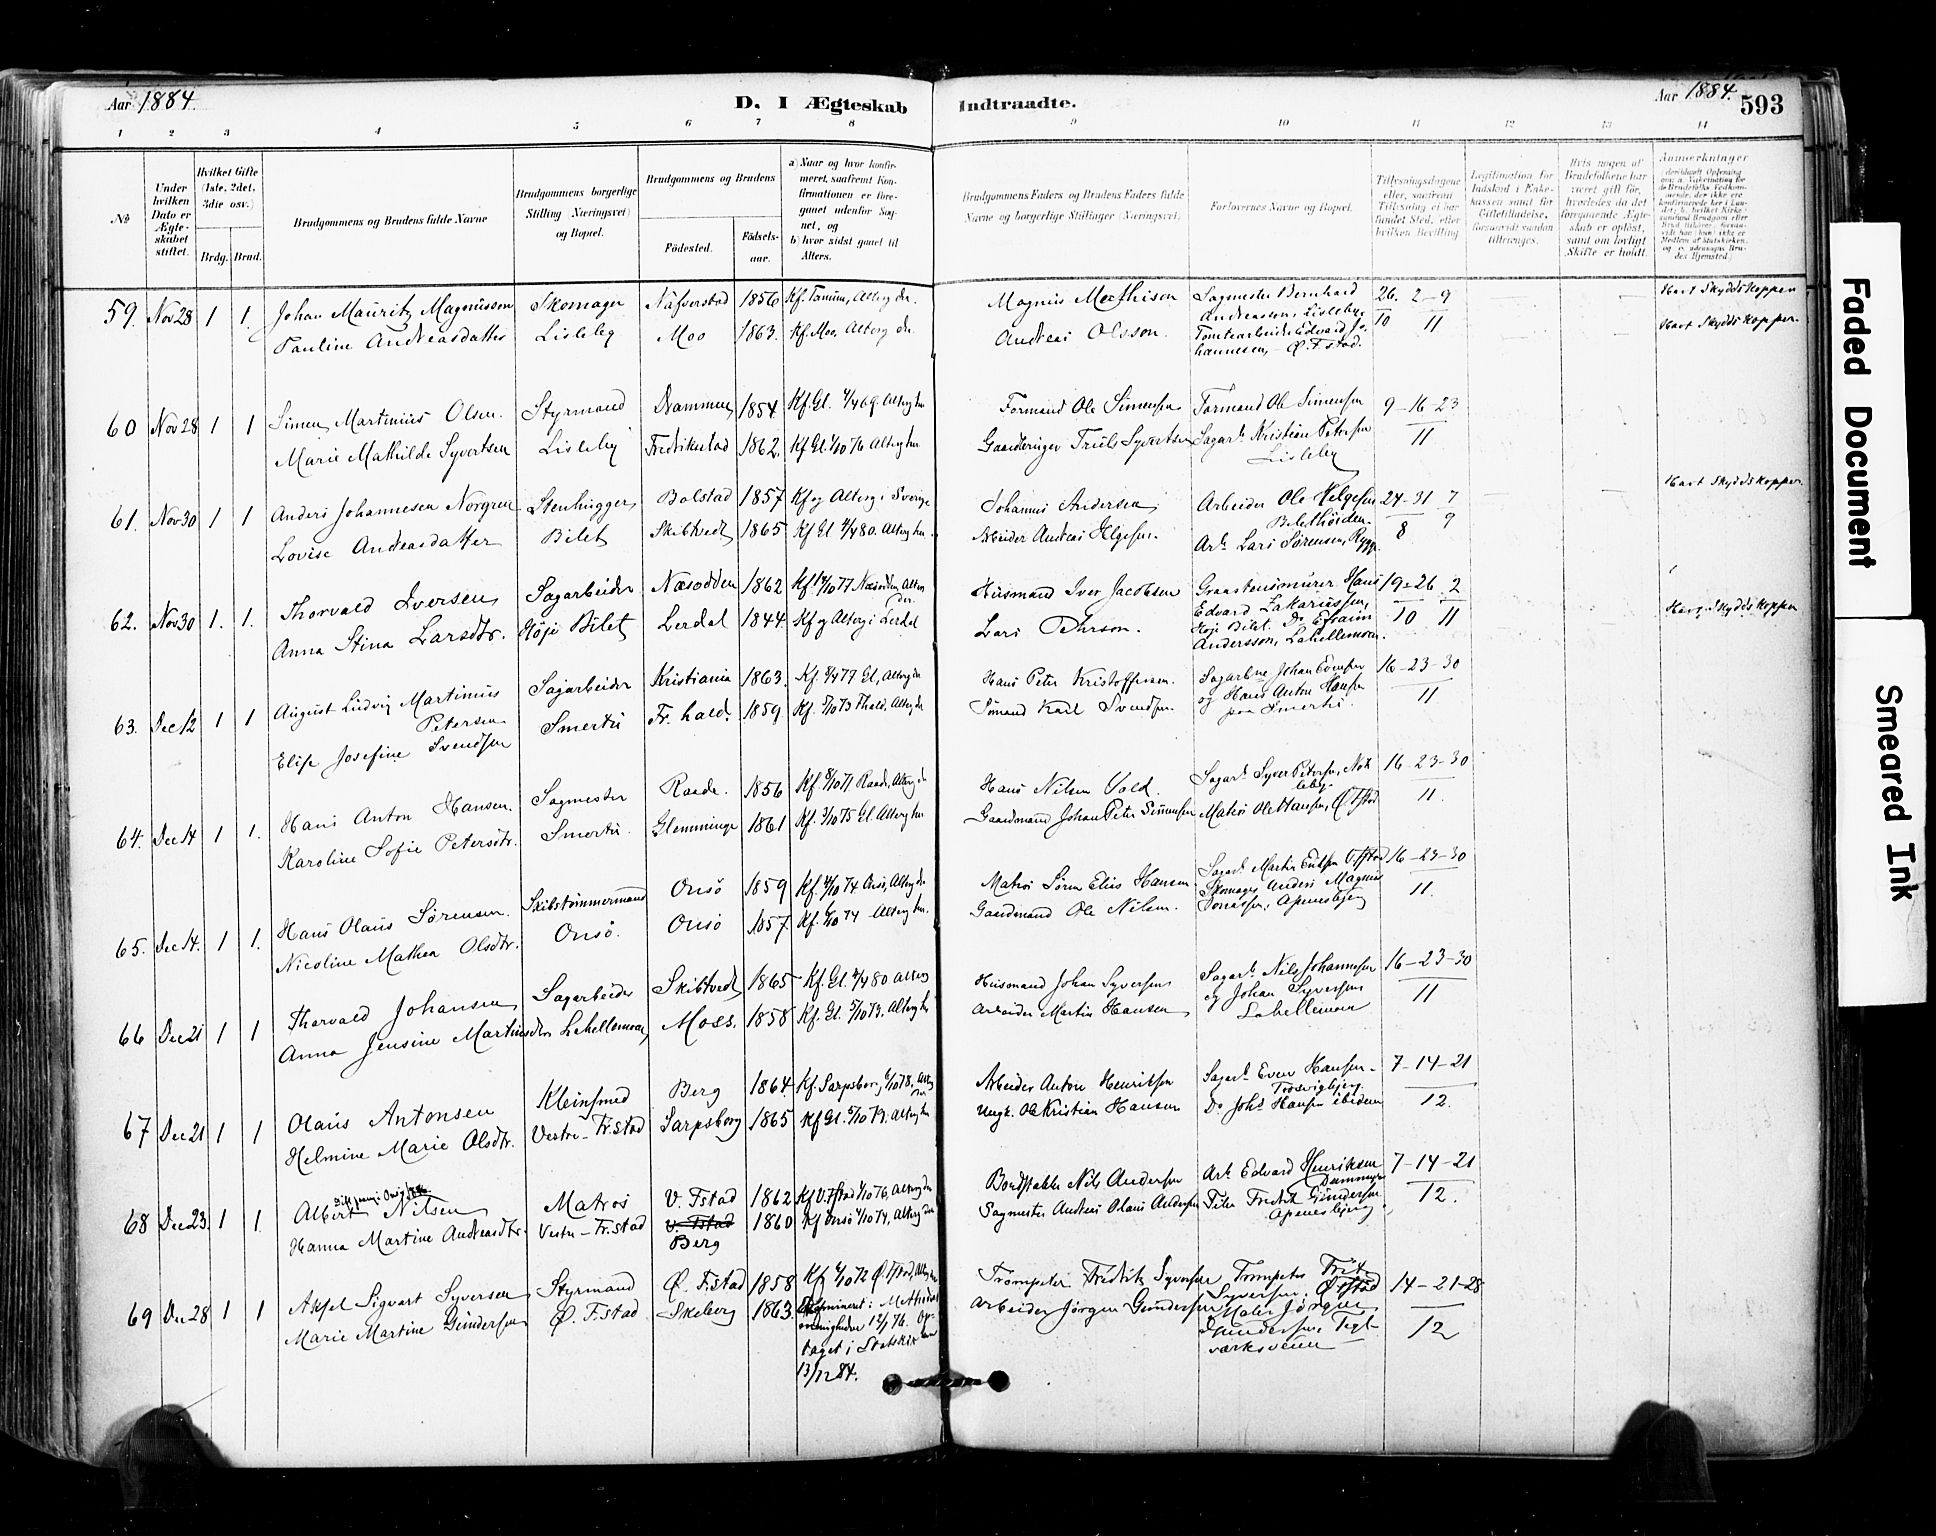 Aar 1884. D. I Ægteskab Indtraadte. Aar 1884. 593
1 2 3 4 5 6 7 8 9 10 11 12 13 14
№
Under hvilken Dato er Ægteskabet stiftet.
Hvilket Gifte (1ste, 2det, 3die osv.)
Brdg. Brud.
Brudgommens og Brudens fulde Navne
Brudgommens borgerlige Stilling (Næringsvei) og Bopæl.
Brudgommens og Brudens
Fødested. Fødselsaar.
a) Naar og hvor konfirmeret, saafremt Konfirmationen er foregaaet udenfor Sognet, og
b) hvor sidst gaaet til Alters.
Brudgommens Faders og Brudens Faders fulde Navne og borgerlige Stillinger (Næringsvei).
Forlovernes Navne og Bopæl.
Tillysningsdagene eller, saafremt Tillysning ei har fundet Sted, efter hvilken Bevilling
Legitimation for Indskud i Enkekassen samt for Giftetilladelse, forsaavidt saadan tiltrænges.
Hvis nogen af Brudefolkene har været gift før, hvorledes da det foregaaende Ægteskab er opløst, samt om lovligt Skifte er holdt.
Anmerkninger
59. Nov 28 1 1. Johan Mauritz Magnusson Skomager Näfverstad 1856 Kf. Tanum, Alterg der. Magnus Mathison Sagmester Bernhard 26. 2-9 Havt Skyddskoppen
Andreasson, Lisleby.
Pauline Andreasdatter Lisleby Moo 1863. Kf. Moo, Alterg der. Andreas Olsson. Tomtearbeider Edvard Jo- 10 11 Havt Skyddskoppen.
hannesen, Ø. F.stad.
60 Nov 28 1 1 Simen Martinius Olsen. Styrmand Drammen 1854 Kf. Gl. 4/4 69. Alterg her Formand Ole Simensen Formand Ole Simensen 9-16-23
Marie Mathilde Syvertsen Lisleby Fredrikstad 1862. Kf Gl. 1/10 76 Alterg her Gaardbruger Truls Syvertsen Sagarb. Kristian Petersen 11
Lisleby
61. Nov 30 1 1 Anders Johannesen Norgren Stenhugger Bolstad 1857 Kf og Alterg i Sverige Johannes Andersen Arbeider Ole Helgesen 24-31 7 Havt Skyddskoppen.
Lovise Andreasdatter Bilet Skibtvedt 1865 Kf Gl 4/4 80. Alterg her. Arbeider Andreas Helgesen. Arb. Lars Sørensen, Rygge. 8 9
62. Nov 30 1. 1. Thorvald Iversen Sagarbeider Næsodden 1862 Kf 14/10 77 Næsodden, Alterg der Husmand Iver Jacobsen Graastensmurer Hans 19-26. 2
Edvard Zakariassen,
Anna Stina Larsdtr. Höje Bilet Lerdal 1844 Kf og Alterg i Lerdal Lars Pehrson. Höje Bilet. Do Efraim 10 11 Havt Skyddskoppen
Andersson, Lahellemoen.
63. Dec 12 1 1 August Ludvig Martinius Sagarbeider Kristiania 1863. Kf. 8/4 77 Gl, Alterg der Hans Peter Kristoffersen. Sagarbne Johan Evensen 16-23-30
Petersen og Hans Anton Hansen
Elise Josefine Svendsen Smertu Fr. hald. 1859 Kf. 5/10 73 Fhald, Alterg der Sømand Karl Svendsen. paa Smertu. 11
64. Dec 14 1 1. Hans Anton Hansen. Sagmester Raade. 1856 Kf. 8/10 71 Raade, Alterg der Hans Nilsen Vold. Sagarb. Syver Petersen, Note 16-23-30
leby.
Karoline Sofie Petersdtr. Smertu. Glemminge 1861 Kf. 3/10 75 Gl. Alterg her Gaardmand Johan Peter Simensen Matros Ole Hansen, Ø. Fstad 11.
65. Dec 14. 1 1. Hans Olaus Sørensen. Skibstømmermand Onsö 1859 Kf. 4/10 74 Onsö, Alterg der Matros Søren Elias Hansen Sagarb. Martin Emilsen V. Fstad 16-23-30
Nicoline Mathea Olsdtr. Onsö. Onsö 1857. Kf. 4/10 74 Alterg her. Gaardmand Ole Nilsen. Skomager Anders Magnus 11.
Jonassen, Apenesbjerg
66 Dec 21 1 1 Thorvald Johansen Sagarbeider Skibtvedt 1865 Kf. Gl. 4/4 80 Alterg Husmand Johan Syversen Sagarb. Nils Johannesen 16-23-30
Anna Jensine Martinsdtr Lahellemoen Moss. 1858 Kf. Gl. 5/10 73. Alterg her Arbeider Martin Hansen og Johan Syversen 11
Lahellemoen
67 Dec 21 1 1 Olaus Antonsen Kleinsmed Berg 1864 Kf. Sarpsborg 6/10 78. Alterg der Arbeider Anton Henriksen Sagarb. Even Hansen. 7-14-21
Trosvigbjerg.
Helmine Marie Olsdtr. Vestre-Fr.stad Sarpsborg 1865 Kf Gl. 5/10 79. Alterg her Ungk. Ole Kristian Hansen Do Johs Hansen ibidem 12.
68 Dec 23 1 1. Albert Nilsen Matros V. Fstad 1862 Kf V. Fstad 1/10 76, Alterg der Bordstabler Nils Andersen Arb. Edvard Henriksen 7-14-21
Dammyr
Hanna Martine Andreasdtr. Vestre-Fr.stad V. Fstad 1860 Kf Onsö 4/10 74, Alterg der Sagmester Andreas Olaus Andersen Filer Fredrik Gundersen 12.
Berg Apenesbjerg.
69 Dec 28 1 1 Axel Sigvart Syversen Styrmand Ø. F.stad 1858 Kf 6/10 72 Ø. Fstad, Alterg her Trompeter Fredrik Syversen Trompeter Fredr. 14-21-28
Syversen, Ø. Fstad
Marie Martine Gundersen Ø. F.stad Skeberg 1863. i Methodist Arbeider Jörgen Gundersen Maler Jørgen 12
menigheden 12/1 76. Op- Gundersen Tegl-
taget i Statskirken værksveien
13/12 84.
Faded Document
Smeared Ink